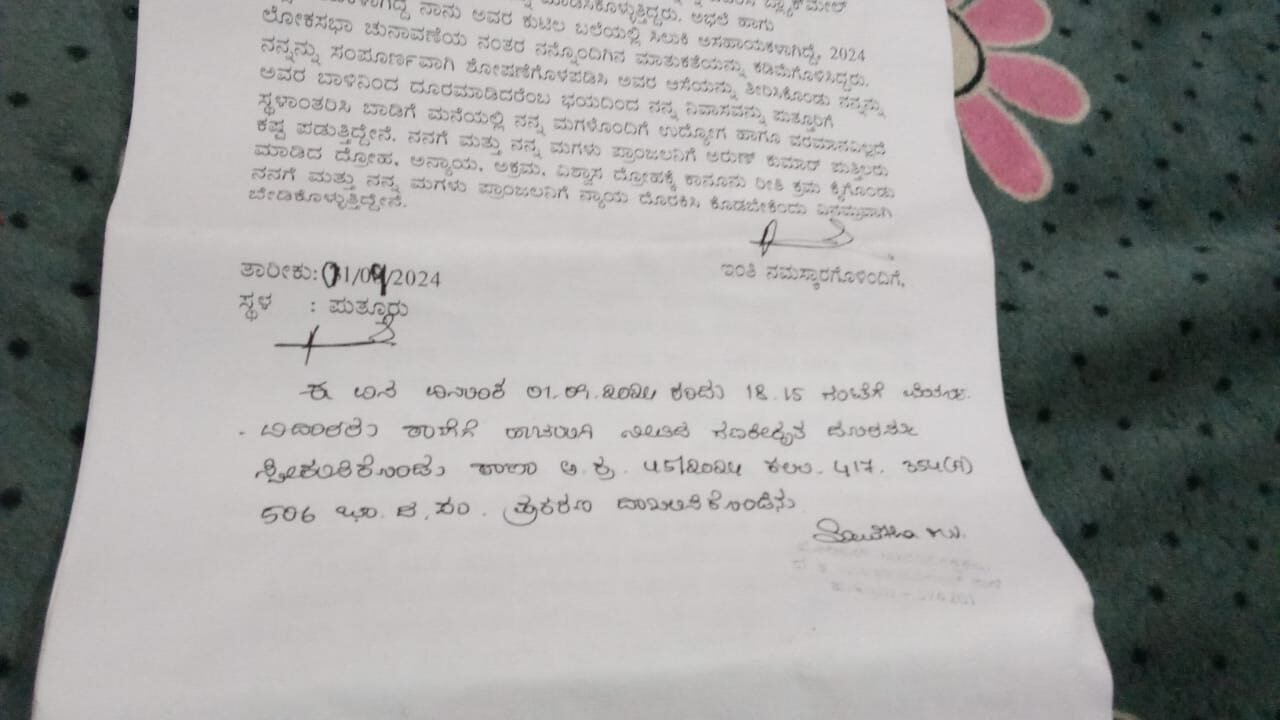 ಮಾಡಿಸಿಕೊಳ್ಳುತ್ತಿದ್ದರು. ಅಭಲೆ ಹಾಗು
ನಾನು ಅವರ ಕುಟಿಲ ಬಲೆಯಲ್ಲಿ ಸಿಲುಕಿ ಅಸಹಾಯಕಳಾಗಿದ್ದೆ, 2024
ಲೋಕಸಭಾ ಚುನಾವಣೆಯ ನಂತರ ನನ್ನೊಂದಿಗಿನ ಮಾತುಕತೆಯನ್ನು ಕಡಿಮೆಗೊಳಿಸಿದ್ದರು.
ನನ್ನನ್ನು ಸಂಪೂರ್ಣವಾಗಿ ಶೋಷಣೆಗೊಳಪಡಿಸಿ ಅವರ ಆಸೆಯನ್ನು ತೀರಿಸಿಕೊಂಡು ನನ್ನನ್ನು
ಅವರ ಬಾಳಿನಿಂದ ದೂರಮಾಡಿದರೆಂಬ ಭಯದಿಂದ ನನ್ನ ನಿವಾಸವನ್ನು ಪುತ್ತೂರಿಗೆ
ಸ್ಥಳಾಂತರಿಸಿ ಬಾಡಿಗೆ ಮನೆಯಲ್ಲಿ ನನ್ನ ಮಗಳೊಂದಿಗೆ ಉದ್ಯೋಗ ಹಾಗೂ ವರಮಾನವಿಲ್ಲದೆ
ಕಷ್ಟ ಪಡುತ್ತಿದ್ದೇನೆ. ನನಗೆ ಮತ್ತು ನನ್ನ ಮಗಳು ಪ್ರಾಂಜಲನಿಗೆ ಅರುಣ್ ಕುಮಾರ್ ಪುತ್ತಿಲರು
ಮಾಡಿದ ದ್ರೋಹ, ಅನ್ಯಾಯ, ಅಕ್ರಮ, ವಿಶ್ವಾಸ ದ್ರೋಹಕ್ಕೆ ಕಾನೂನು ರೀತಿ ಕ್ರಮ ಕೈಗೊಂಡು
ನನಗೆ ಮತ್ತು ನನ್ನ ಮಗಳು ಪ್ರಾಂಜಲನಿಗೆ ನ್ಯಾಯ ದೊರಕಿಸಿ ಕೊಡಬೇಕೆಂದು ವಿನಮ್ರವಾಗಿ
ಬೇಡಿಕೊಳ್ಳುತ್ತಿದ್ದೇನೆ.
ತಾರೀಕು: 01/09/2024
ಇಂತಿ ನಮಸ್ಕಾರಗಳೊಂದಿಗೆ,
ಸ್ಥಳ : ಪುತ್ತೂರು
ಈ ದಿನ ದಿನಾಂಕ 01.09.2024 ರಂದು 18.15 ಗಂಟೆಗೆ
ಠಾಣೆಗೆ ಹಾಜರಾಗಿ ನೀಡಿದ ಗಣಕೀಕೃತ ದೂರನ್ನು
ಸ್ವೀಕರಿಸಿಕೊಂಡು ಠಾಣಾ ಅ.ಕ್ರ. 45/2024 ಕಲಂ. 417, 354(A)
506 ಭಾ.ದ.ಸಂ. ಪ್ರಕರಣ ದಾಖಲಿಸಿಕೊಂಡೆನು